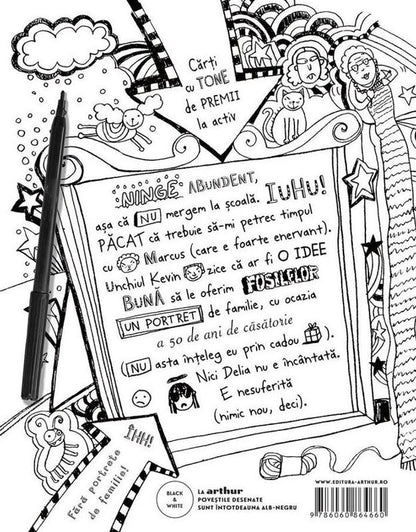 Cărți
cu TONE
de PREMII
la activ
NINGE ABUNDENT, IUHU!
așa că NU mergem la școală.
PĂCAT că trebuie să-mi petrec timpul
cu Marcus (care e foarte enervant).
Unchiul Kevin zice că ar fi O IDEE
BUNĂ să le oferim FOSILELOR
UN PORTRET de familie, cu ocazia
a 50 de ani de căsătorie
(NU asta înțeleg eu prin cadou).
Nici Delia nu e încântată.
E nesuferită
(nimic nou, deci).
IHH!
Fără portrete
de familie!
BLACK
&
WHITE
LA arthur
POVEȘTILE DESENATE
SUNT ÎNTOTDEAUNA ALB-NEGRU
WWW.EDITURA-ARTHUR.RO
9 786060 864660